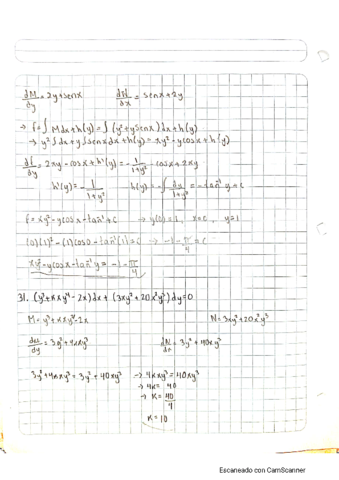 dM/dy = 2y + senx    dN/dx = senx + 2y
→ f = ∫ M dx + h(y) = ∫ (y² + y senx) dx + h(y)
→ y² ∫ dx + y ∫ senx dx + h(y) = xy² - y cosx + h(y)
df/dy = 2xy - cosx + h'(y) = -1/(1+y²) - cosx + 2xy
h'(y) = -1/(1+y²)    h(y) = -∫ dy/(1+y²) = -tan⁻¹y + c
f = xy² - y cosx - tan⁻¹ + c → y(0) = 1, x=0, y=1
(0)(1)² - (1) cos0 - tan⁻¹(1) = c → -1 - π/4 = c
xy² - y cosx - tan⁻¹y = -1 - π/4
31. (y³ + kxy⁴ - 2x) dx + (3xy² + 20x²y³) dy = 0
M = y³ + kxy⁴ - 2x    N = 3xy² + 20x²y³
dM/dy = 3y² + 4kxy³    dN/dx = 3y² + 40xy³
3y² + 4kxy³ = 3y² + 40xy³ → 4kxy³ = 40xy³
→ 4k = 40
→ k = 40/4
k = 10
Escaneado con CamScanner